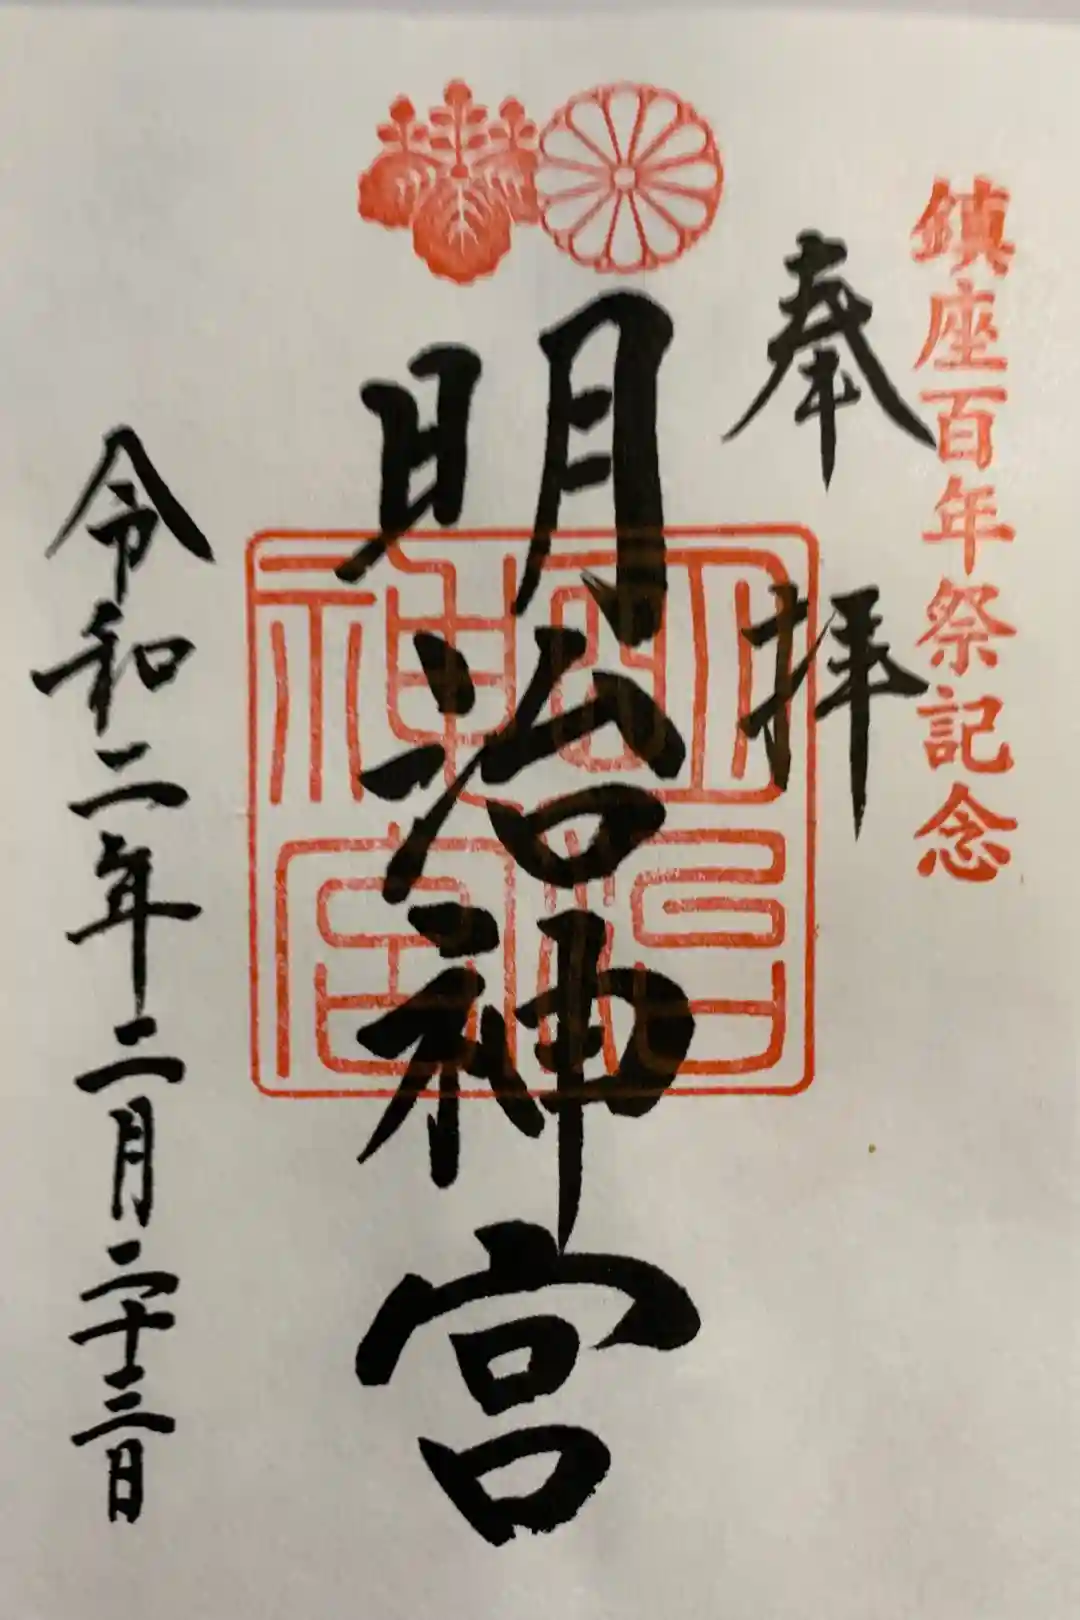 鎮座百年祭記念
奉拝
明治神宮
明治神宮
令和二年二月二十三日